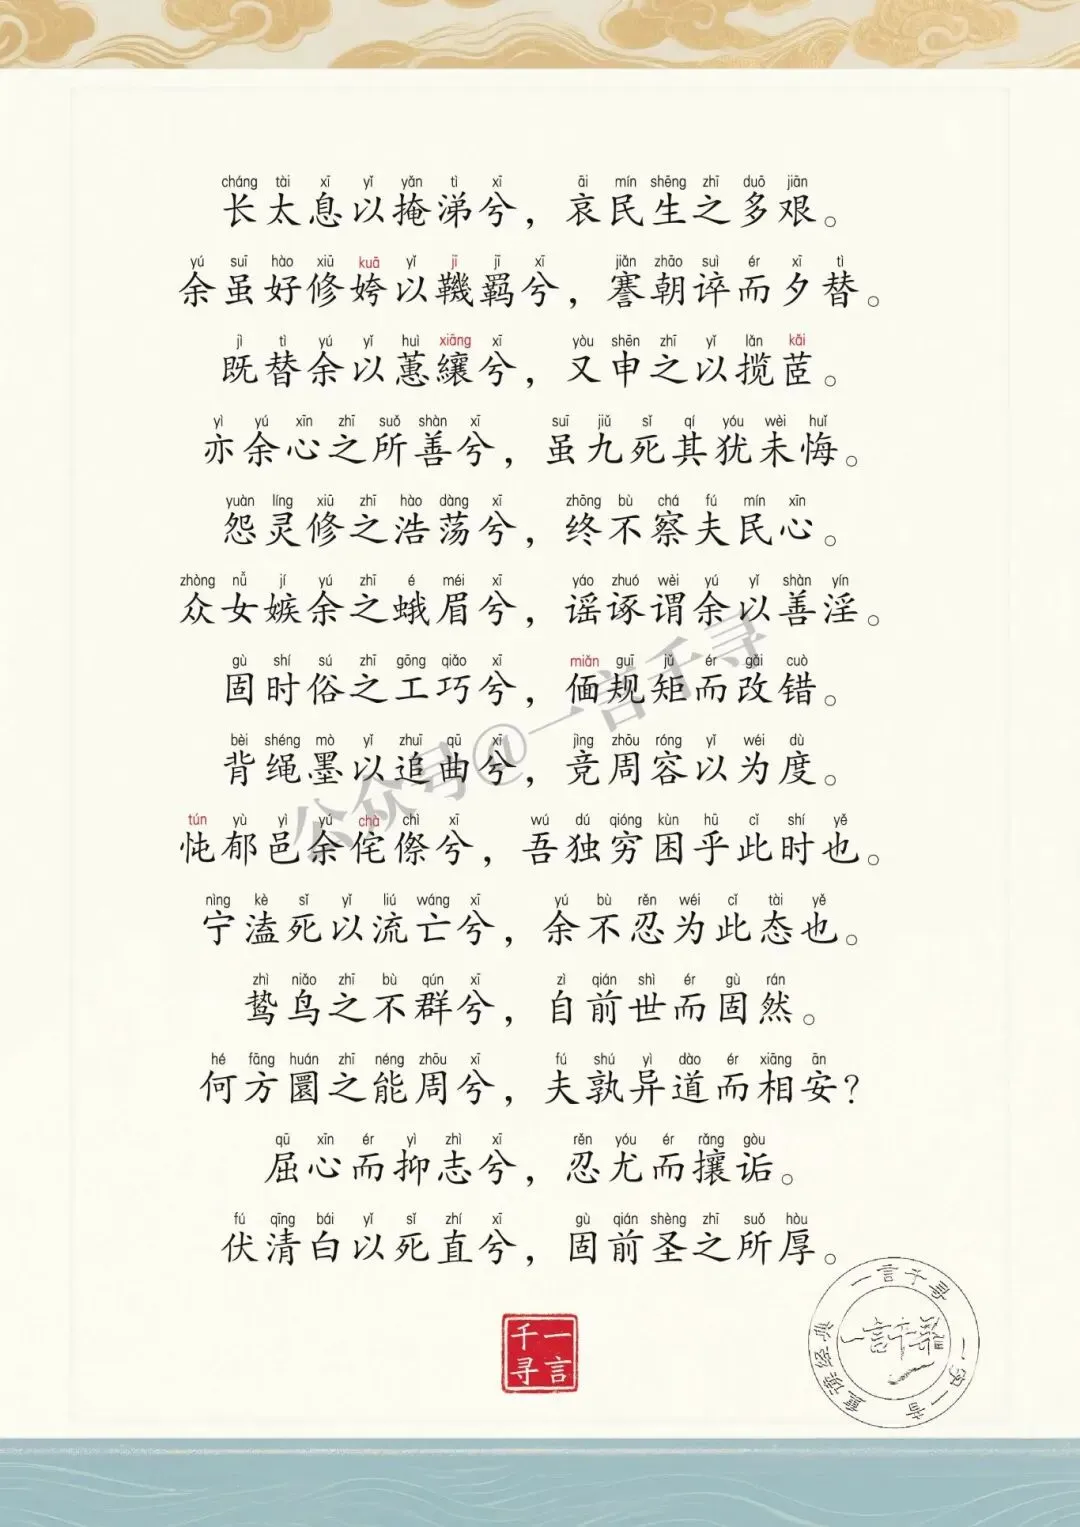 cháng tài xī yǐ yǎn tì xī āi mín shēng zhī duō jiān
长太息以掩涕兮，哀民生之多艰。
yú suī hào xiū kuā yǐ jī jī xī jiǎn zhāo suì ér xī tì
余虽好修姱以鞿羁兮，謇朝谇而夕替。
jì tì yú yǐ huì xiāng xī yòu shēn zhī yǐ lǎn kǎi
既替余以蕙纕兮，又申之以揽茝。
yì yú xīn zhī suǒ shàn xī suī jiǔ sǐ qí yóu wèi huǐ
亦余心之所善兮，虽九死其犹未悔。
yuàn líng xiū zhī hào dàng xī zhōng bù chá fú mín xīn
怨灵修之浩荡兮，终不察夫民心。
zhòng nǚ jí yú zhī é méi xī yáo zhuó wèi yú yǐ shàn yín
众女嫉余之蛾眉兮，谣诼谓余以善淫。
gù shí sú zhī gōng qiǎo xī miǎn guī jǔ ér gǎi cuò
固时俗之工巧兮，偭规矩而改错。
bèi shéng mò yǐ zhuī qū xī jìng zhōu róng yǐ wéi dù
背绳墨以追曲兮，竞周容以为度。
tún yù yì yú chà chì xī wú dú qióng kùn hū cǐ shí yě
忳郁邑余侘傺兮，吾独穷困乎此时也。
nìng kè sǐ yǐ liú wáng xī yú bù rěn wéi cǐ tài yě
宁溘死以流亡兮，余不忍为此态也。
zhì niǎo zhī bù qún xī zì qián shì ér gù rán
鸷鸟之不群兮，自前世而固然。
hé fāng huán zhī néng zhōu xī fú shú yì dào ér xiāng ān
何方圜之能周兮，夫孰异道而相安？
qū xīn ér yì zhì xī rěn yóu ér rǎng gòu
屈心而抑志兮，忍尤而攘诟。
fú qīng bái yǐ sǐ zhí xī gù qián shèng zhī suǒ hòu
伏清白以死直兮，固前圣之所厚。
公众号@一言千寻
一言千寻
一言千寻
一字一音
重读经典
一言千寻